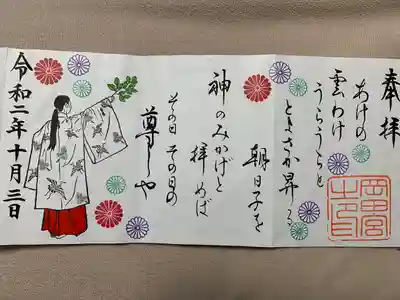 奉拝
あけの
雲わけ
うらうらと
とよさか昇る
朝日子を
神のみかげと
拝めば
その日その日の
尊しや
令和二年十月三日